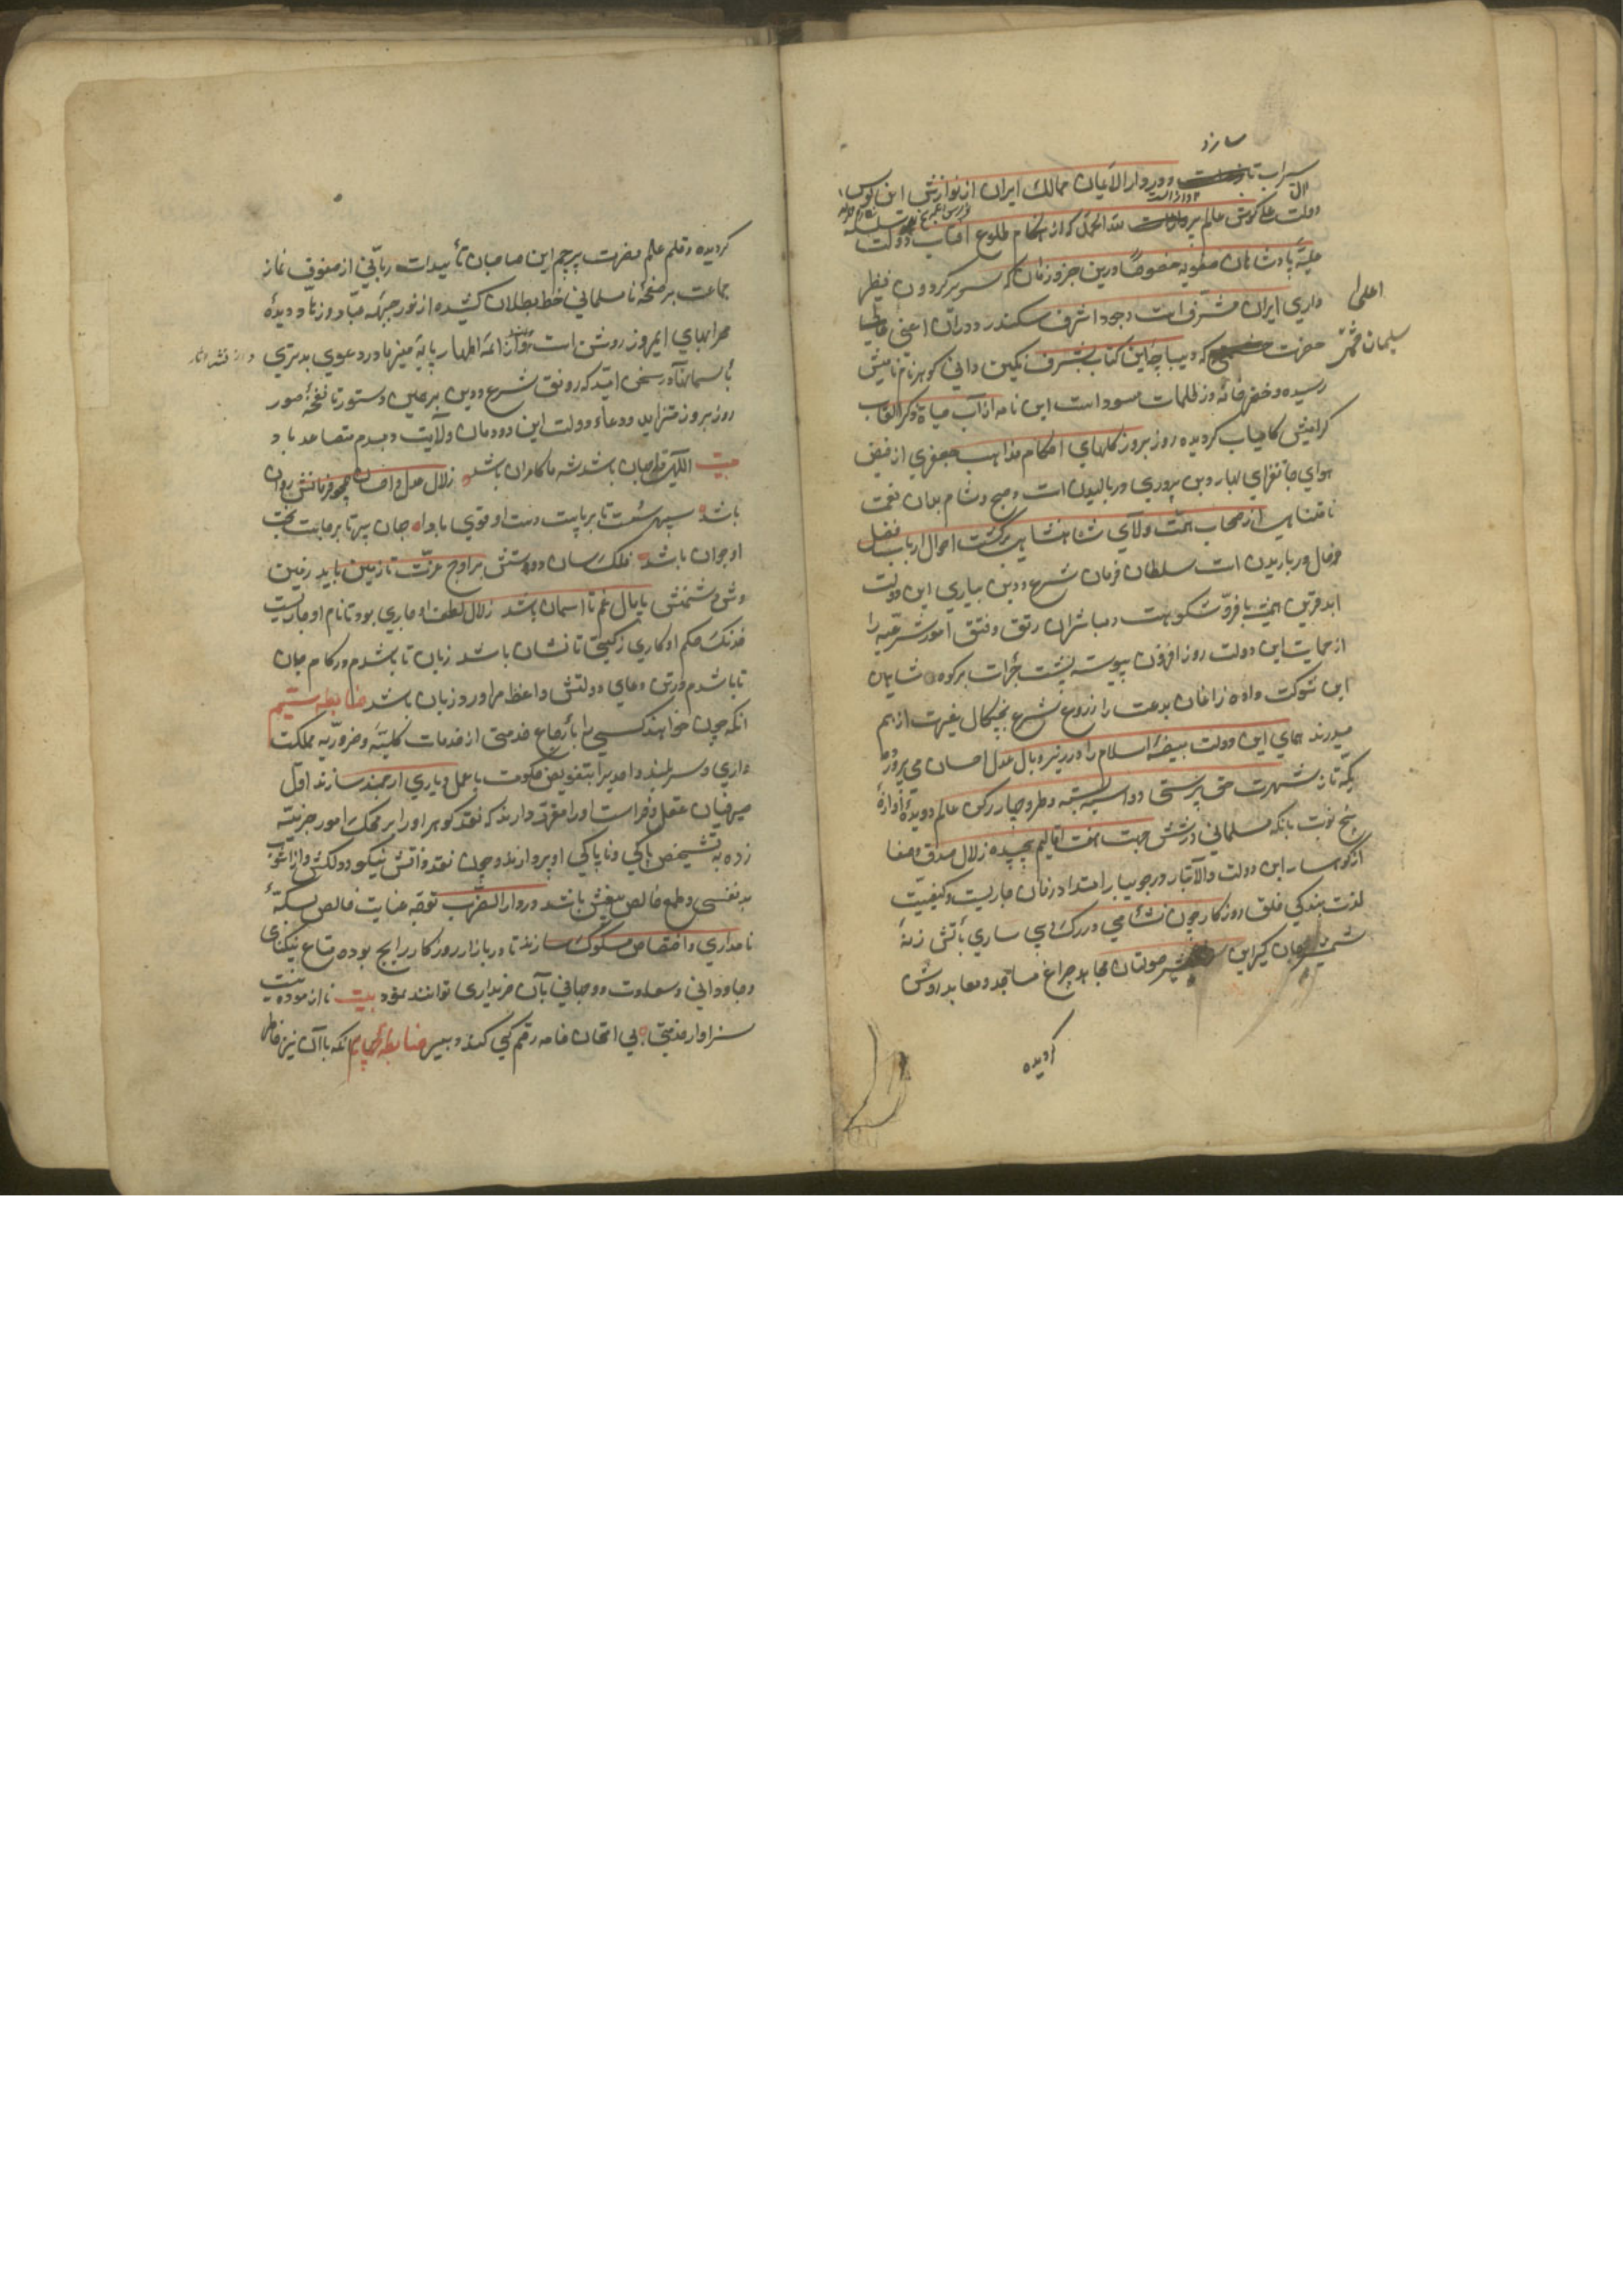 سازد
سیراب و در دار الاعیان ممالک ایران از نوازش این کوس
دولت علی گوش عالم پر لله الحمد که از هنگام طلوع آفتاب دولت
علیّه پادشاهان صفویه خصوصًا درین جزو زمان که سریر گردون نظیر
داری ایران مشرف است بوجود اشرف سکندر دوران اعنی
اعلی
حضرت سلیمان حشمتی که دیباچه این کتاب بشرف نگین دانی گوهر نام نامیش
رسیده و خضر خامه در ظلمات سواد این نامه از آب حیاة ذکر القاب
گرامیش کامیاب گردیده روز بروز گلهای احکام مذاهب جعفری از فیض
هوای جانفزای بهار دین پروری در بالیدن است و صبح و شام باران نعمت
نامتناهی از سحاب همت والای شاهنشاهی بر کشت احوال ارباب فضل
و حال در باریدن است سلطان فرمان شرع و دین بیاری این دولت
ابد قرین همیشه با فرّ و شکوهست و مباشران رتق و فتق امور شرعیه را
از حمایت این دولت روز افزون پیوسته پشت جرأت بر کوه شاهین
این شوکت واده زاغان بدعت را از روع شرع بچنگال غیرت از هم
میدرند همای این دولت بیضهٔ اسلام را در زیر و بال عدل احسان می پرورد
یکه تاز شهرت حق پرستی دو اسپه بهر طرف چهار رکن عالم دویده آوازهٔ
پنج نوبت بانگ مسلمانی در شش جهت هفت اقالیم پیچیده زلال صدق و صفا
از کوهسار این دولت والا تبار در جویبار امتداد زمان جاریست و کیفیت
لذت بندگی خلق روزگار چون نشاء می در رگ و پی ساری بآتش زنهٔ
شمشیر جهانگیر این صولتان مجاهد چراغ مساجد و معابد روشن
گردیده
گردیده و قلم علم نصرت پرچم این صاحبان تأییدات ربّانی از صفوف نماز
جماعت بر صفحهٔ نامسلمانی خط بطلان کشیده از نور جبهه عبّاد و زهّاد دیدهٔ
محرابهای امروز روشن است و از اعهٔ اطهار پایهٔ منبرها در دعوی برتری
با آسمانها در سخن امید که رونق شرع و دین بر همین دستور تا نفخهٔ صور
روز بروز متزاید و دعاء دولت این دودمان ولایت دمبدم متصاعد باد
بیت الهی تا جهان باشد شه ما کامران باشد زلال عدل و احسان همچو فرمانش روان
باشد سپهر سست تا بر پاست دست او قوی بادا جهان پیر تا برجاست بخت
او جوان باشد فلک سان دوستش بر اوج عزّت تا زمین باید زمین
وش دشمنش پامال غم تا آسمان باشد زلال لطف او جاری بود تا نام او جاریست
خدنگ حکم او کاری ز گیتی تا نشان باشد زبان تا باشدم در کام جان
تا باشدم در تن دعای دولتش واعظ مرا ورد زبان باشد ضابطه سیم
آنکه چون خواهند کسی را بارجاع خدمتی از خدمات کلیّه و ضروریّه مملکت
داری و سربلند و احدی را بتفویض حکومت یا عمل دیاری ارجمند سازند اول
صیرفیان عقل و فراست او را مقرّر دارند که نقد گوهر او را بر محک امور جزئیّه
زده به تشخیص پاکی و ناپاکی او پردازند و چون نقد ذاتش نیکو و دلکش و از شوب
بد نفسی و طمع خالص بیغش باشد در دار الضرب توجّه عنایت خالص بسکّهٔ
نامداری و اختصاص مسکوک سازند تا در بازار روزگار رایج بوده متاع نیکنامی
و جاودانی و سعادت دو جهانی بآن خریداری توانند نمود بیت نا آزموده نیست
سزاوار خدمتی بی امتحان خامه رقم کی کند دبیر ضابطه چهارم آنکه با آن نیز خاطر